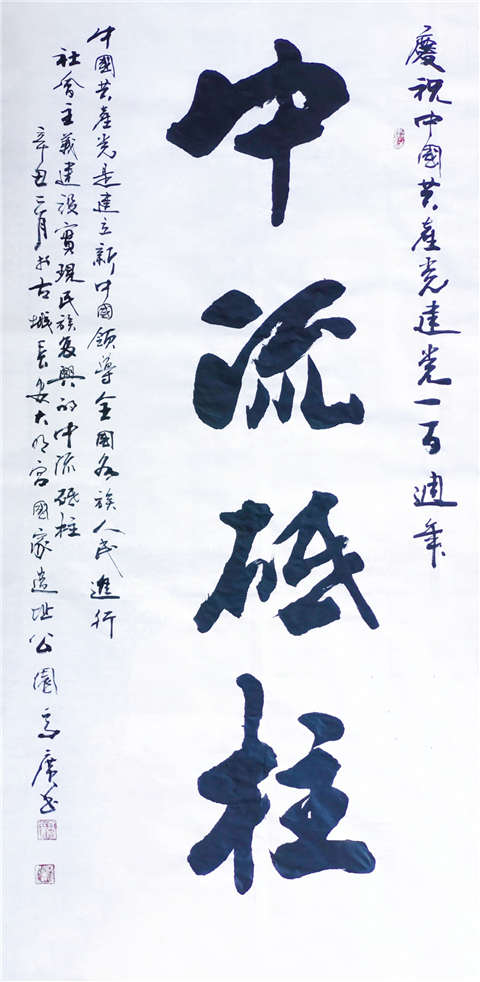 慶祝中國共產党建党一百週年
中流砥柱
中國共產党是建立新中國領導全國各族人民進行
社會主義建設實現民族复興的中流砥柱
辛丑二月於古城長安大明宮國家遺址公園 高廣书